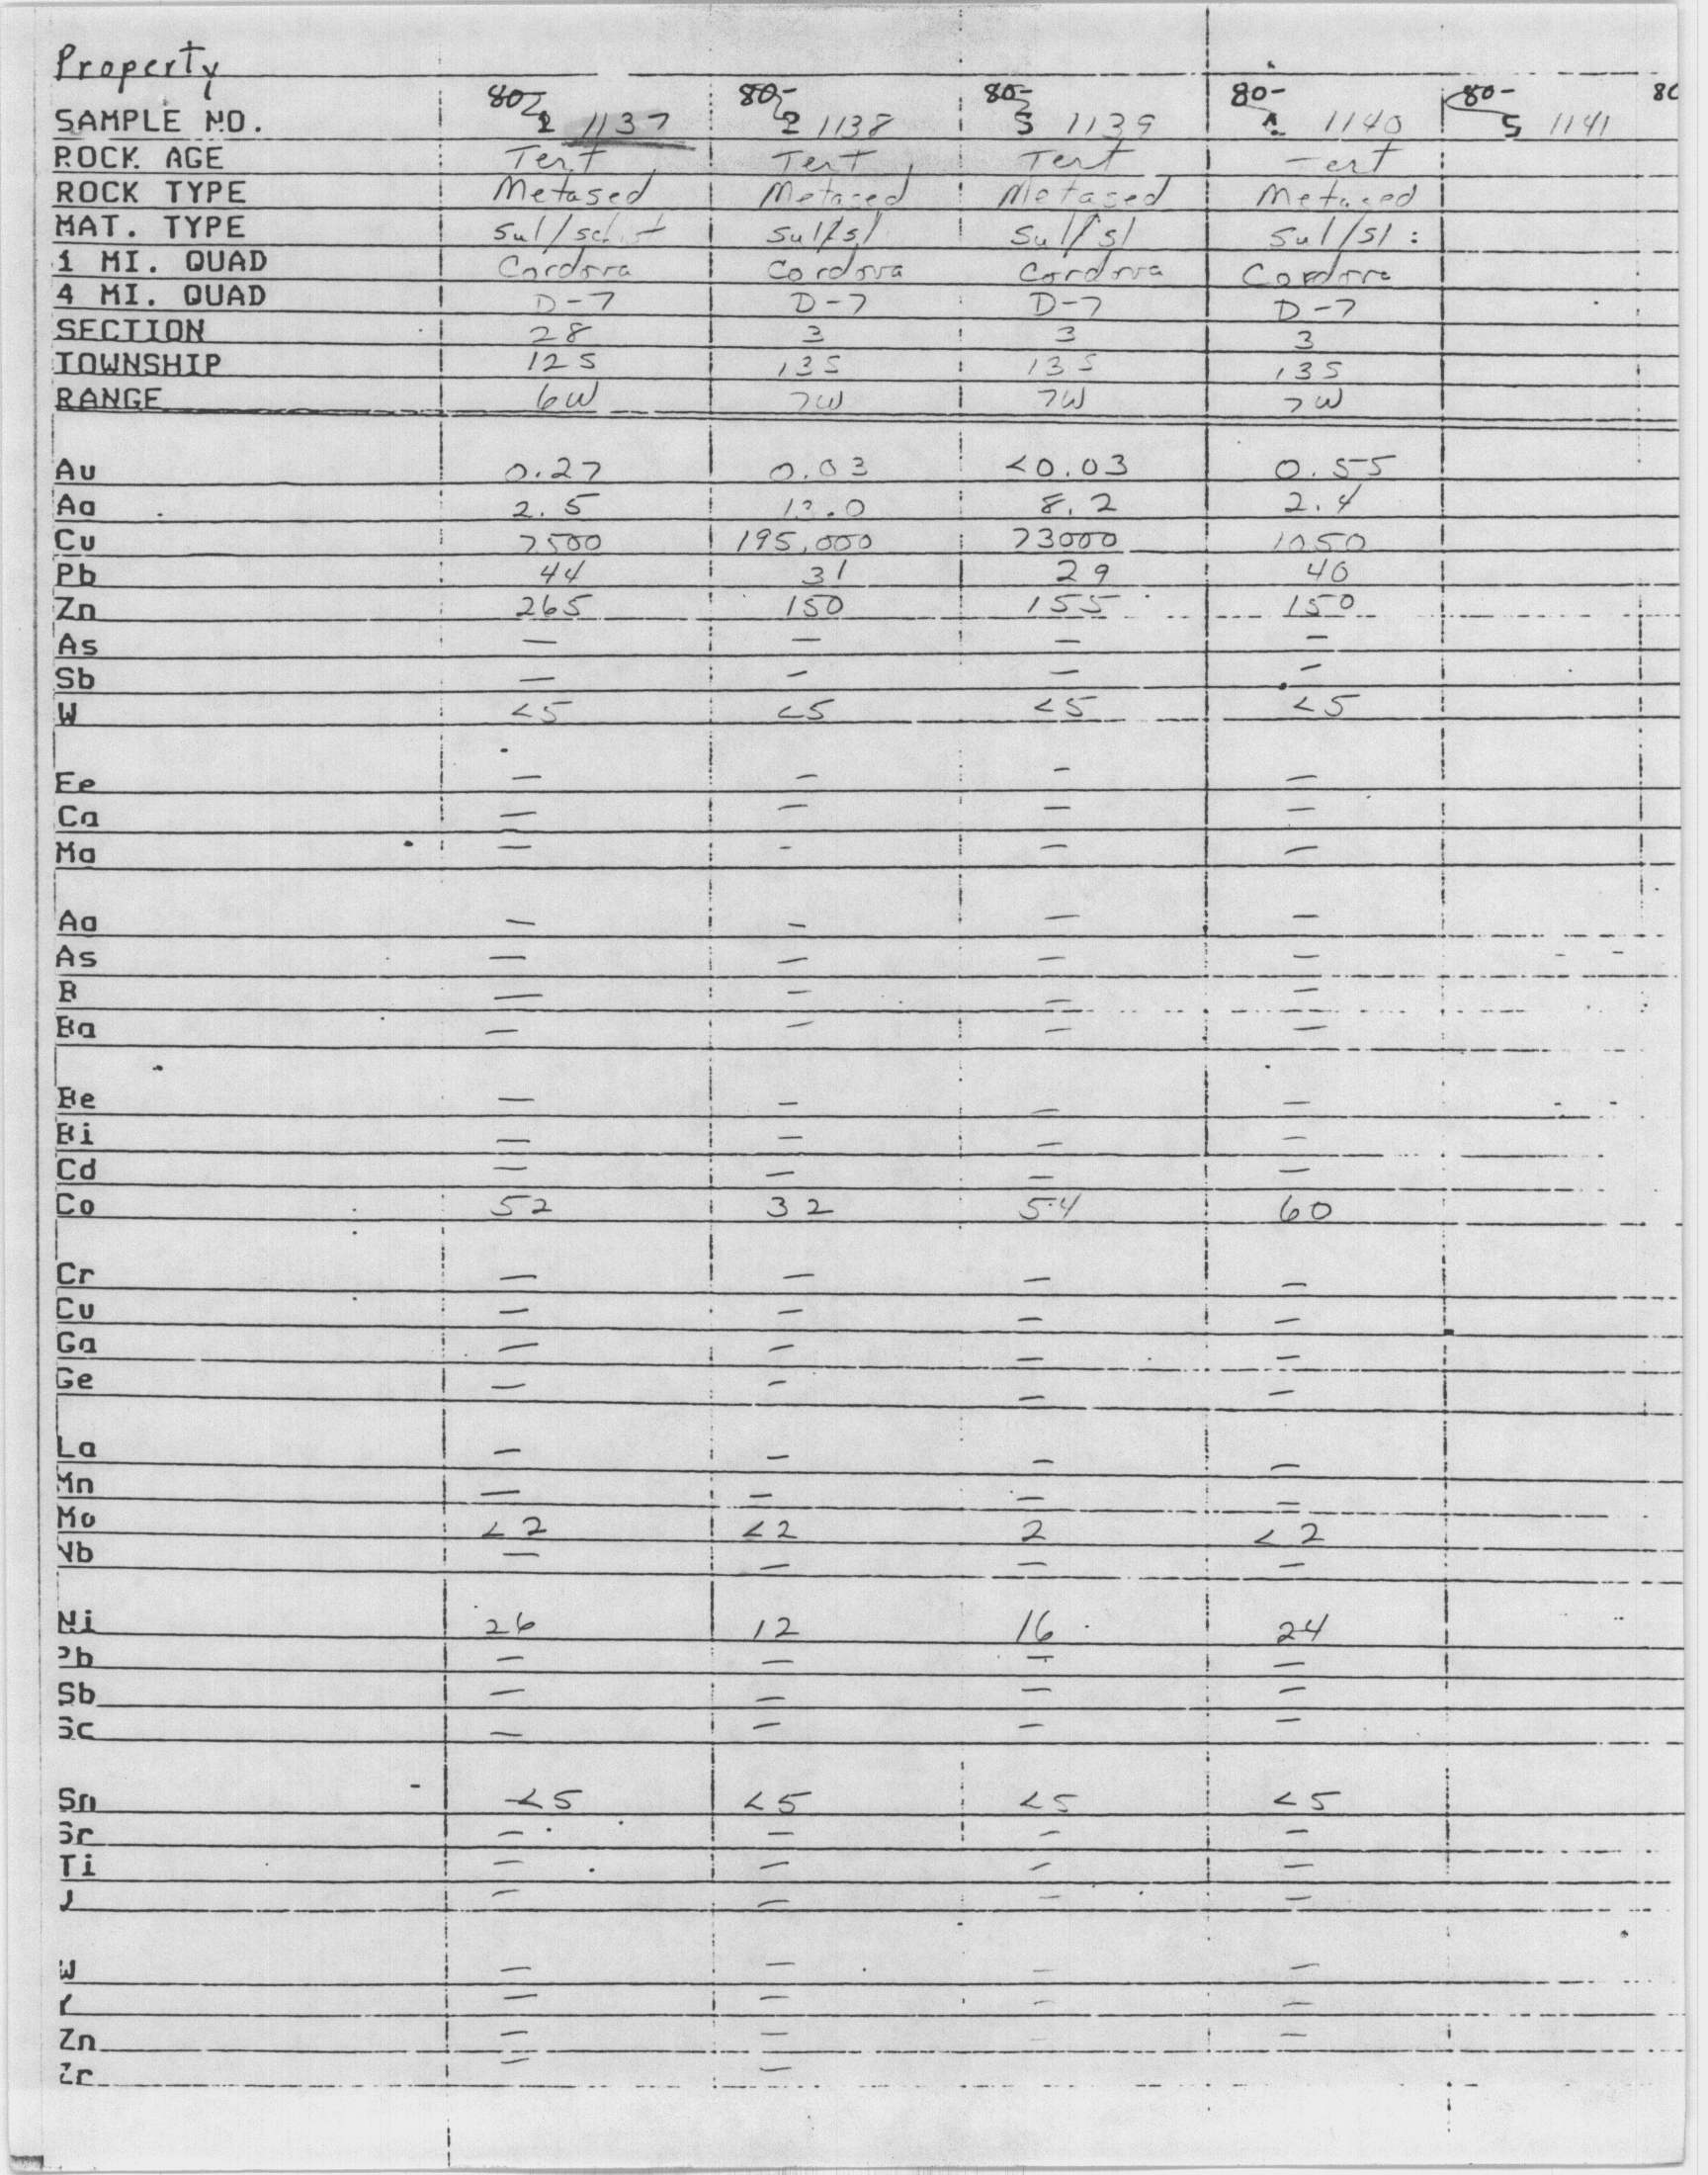 Property
80- 80- 80- 80- 80- 80
SAMPLE NO. 1 1137 2 1138 3 1139 1140 5 1141
ROCK AGE Tert Tert Tert Tert
ROCK TYPE Metased Metased Metased Metased
MAT. TYPE Sul/schist Sul/sl Sul/sl Sul/sl :
1 MI. QUAD Cordova Cordova Cordova Cordova
4 MI. QUAD D-7 D-7 D-7 D-7
SECTION 28 3 3 3
TOWNSHIP 12S 13S 13S 13S
RANGE 6W 7W 7W 7W
Au 0.27 0.03 <0.03 0.55
Ag 2.5 13.0 8.2 2.4
Cu 7500 195,000 73000 1050
Pb 44 31 29 40
Zn 265 150 155 150
As — — — —
Sb — — — —
W <5 <5 <5 <5
Fe — — — —
Ca — — — —
Mg — — — —
Ag — — — —
As — — — —
B — — — —
Ba — — — —
Be — — — —
Bi — — — —
Cd — — — —
Co 52 32 54 60
Cr — — — —
Cu — — — —
Ga — — — —
Ge — — — —
La — — — —
Mn — — — —
Mo <2 <2 2 <2
Nb — — — —
Ni 26 12 16 24
Pb — — — —
Sb — — — —
Sc — — — —
Sn <5 <5 <5 <5
Sr — — — —
Ti — — — —
— — — —
W — — — —
Y — — — —
Zn — — — —
Zr — —